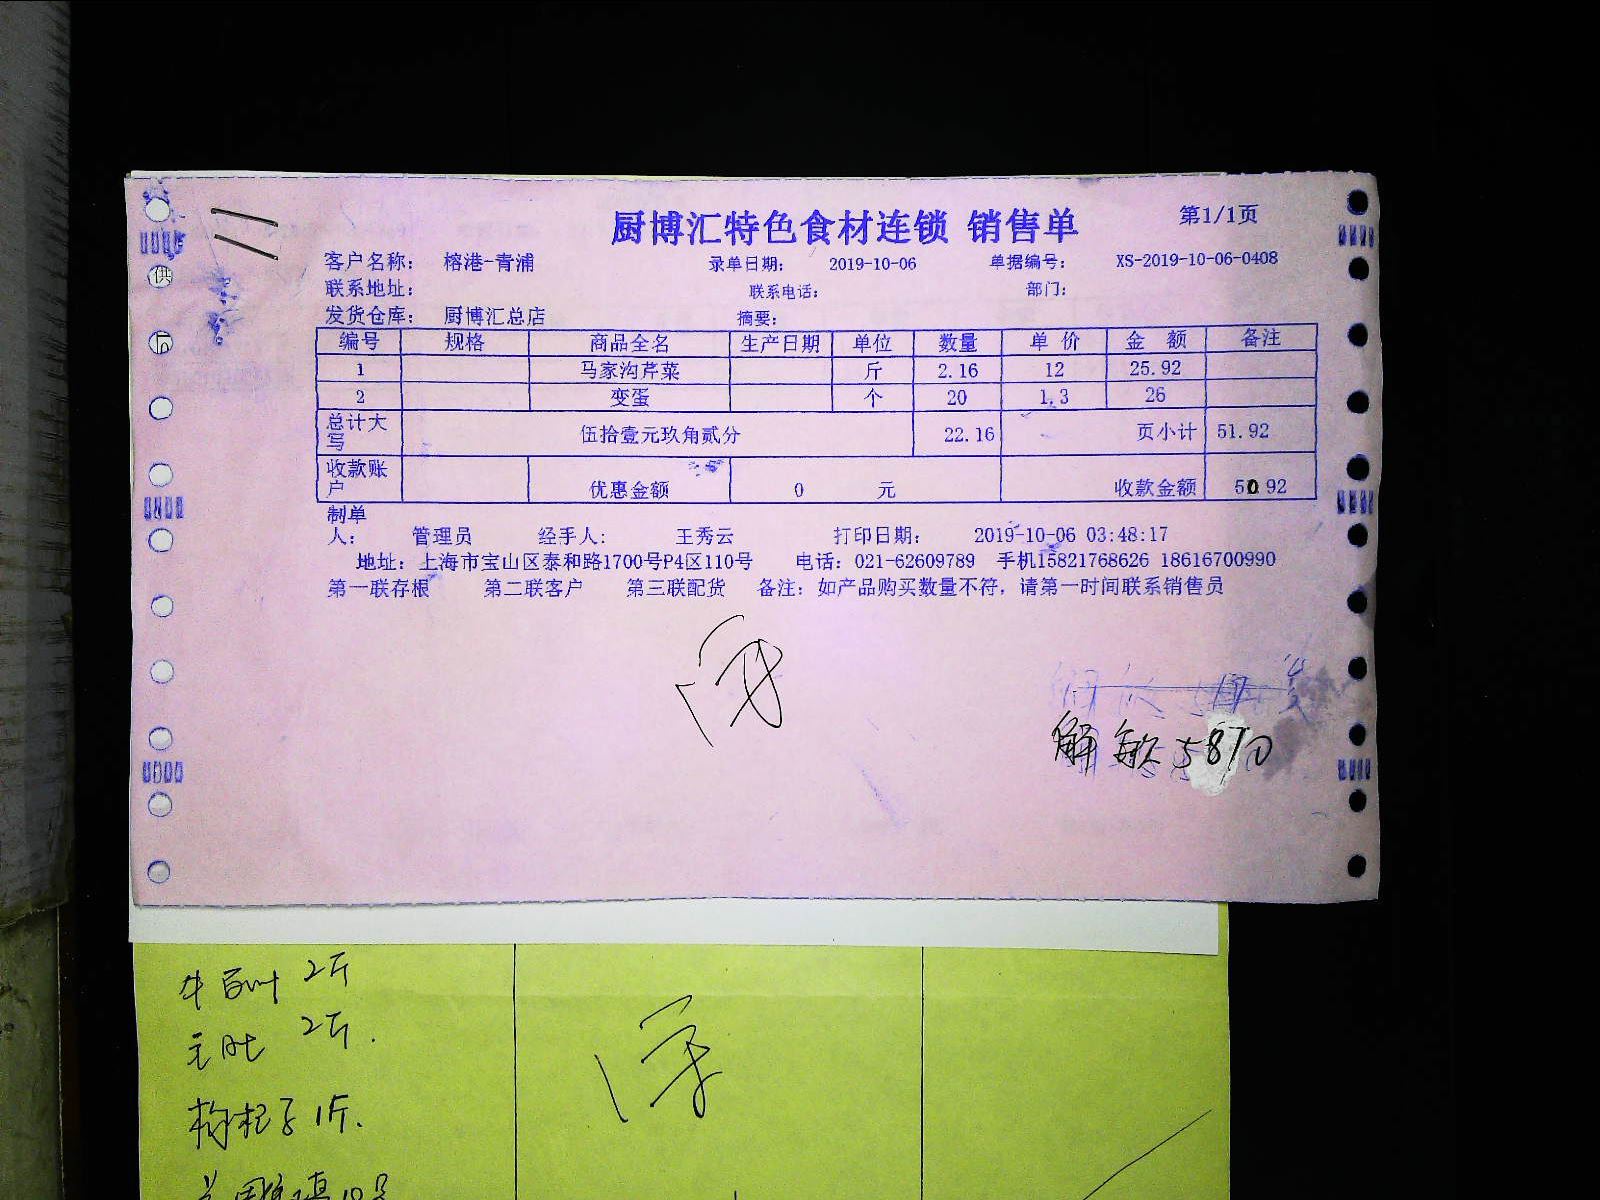 厨博汇特色食材连锁 销售单 第1/1页
客户名称: 榕港-青浦 录单日期: 2019-10-06 单据编号: XS-2019-10-06-0408
联系地址: 联系电话: 部门:
发货仓库: 厨博汇总店 摘要:
编号 规格 商品全名 生产日期 单位 数量 单 价 金 额 备注
1 马家沟芹菜 斤 2.16 12 25.92
2 变蛋 个 20 1.3 26
总计大写 伍拾壹元玖角贰分 22.16 页小计 51.92
收款账户 优惠金额 0 元 收款金额 50.92
制单人: 管理员 经手人: 王秀云 打印日期: 2019-10-06 03:48:17
地址: 上海市宝山区泰和路1700号P4区110号 电话: 021-62609789 手机15821768626 18616700990
第一联存根 第二联客户 第三联配货 备注: 如产品购买数量不符, 请第一时间联系销售员
解敏 5870
牛百叶 2斤
毛肚 2斤.
枸杞子 1斤.
供